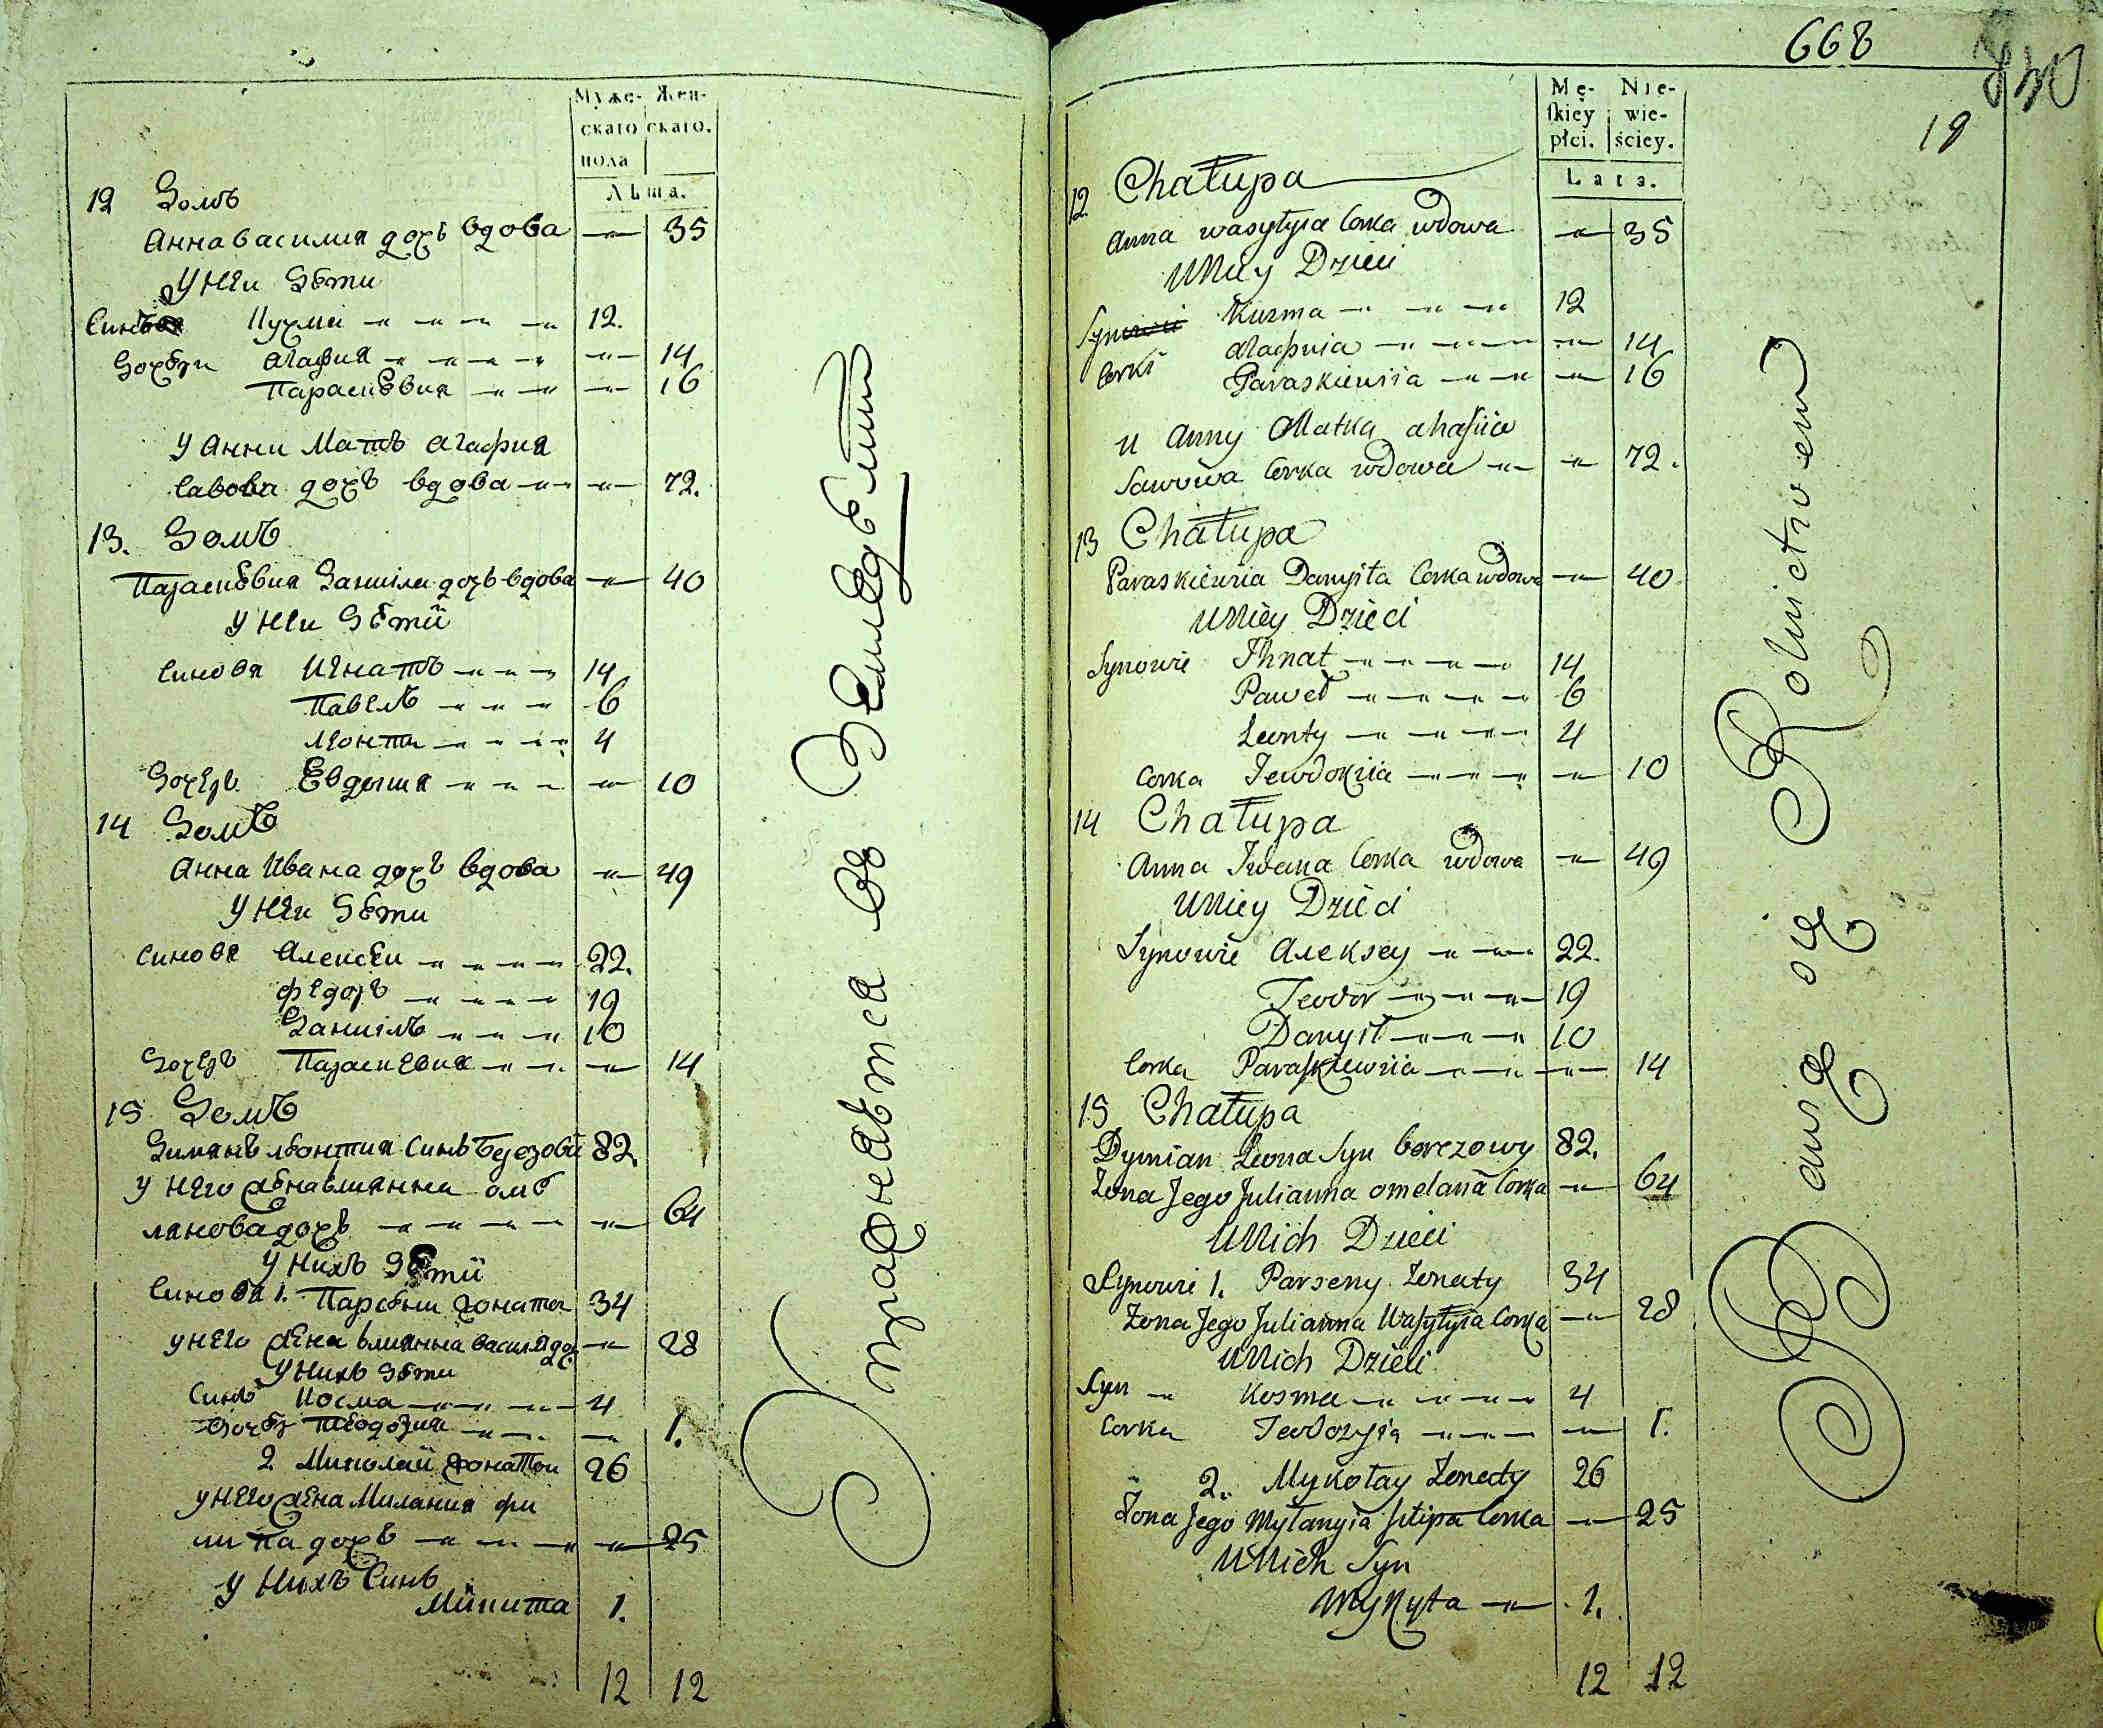 Муже- Жен-
скаго скаго.
пола
Лѣта.
12 Домъ
Анна василия дочъ вдова — 35
У неи Дѣти
Синъ Кузма 12.
Дочѣри Агафия — 14
Параскѣвия — 16
У Анни Мать Агафия
Савова дочъ вдова — 72.
13. Домъ
Параскѣвия Данила дочъ вдова — 40
У неи Дѣти
Синовя Игнатъ 14
Павелъ 6
Леонти 4
Дочеръ Евдокия — 10
14 Домъ
Анна Ивана дочъ вдова — 49
У неи Дѣти
Синовя Алексѣи 22.
Федоръ 19
Данилъ 10
Дочеръ Параскевия — 14
15 Домъ
Димянъ Леонтия Синъ Березови 82.
У него жена влиянна омѣ
лянова дочъ — 64
У нихъ Дѣти
Синовя 1. Парфени жонати 34
У него жена влиянна василия доч — 28
У нихъ Дѣти
Синъ Косма 4
Дочъ Теодозия — 1.
2 Миколай жонатои 26
У него жена Милания фи
липа дочъ — 25
У нихъ Синъ
Микита 1.
12 12
Упражняется въ Земледелии
668
19
Mę- Nie-
ſkiey wie-
płci. ściey.
Lata.
12 Chałupa
Anna wasylyia Corka wdowa — 35
U Niey Dzieci
Syn Kuzma 12
Corki Agafia — 14
Paraskiewiia — 16
U Anny Matka ahafiia
Sawowa Corka wdowa — 72.
13 Chałupa
Paraskiewia Danyła Corka wdowa — 40
U Niey Dzieci
Synowie Ihnat 14
Paweł 6
Leonty 4
Corka Jewdokiia — 10
14 Chałupa
Anna Iwana Corka wdowa — 49
U Niey Dzieci
Synowie Aleksey 22.
Teodor 19
Danyił 10
Corka Paraſkiewiia — 14
15 Chałupa
Dymian Leona Syn berezowy 82.
Zona Jego Julianna omelana Corka — 64
U Nich Dzieci
Synowie 1. Parseny Zonaty 34
Zona Jego Julianna Wasylyia Corka — 28
U Nich Dzieci
Syn Kosma 4
Corka Teodozyia — 1.
2. Mykołay Zonaty 26
Zona Jego Myłanyia filipa Corka — 25
U Nich Syn
Mykyta 1.
12 12
Bawią się Rolnictwem